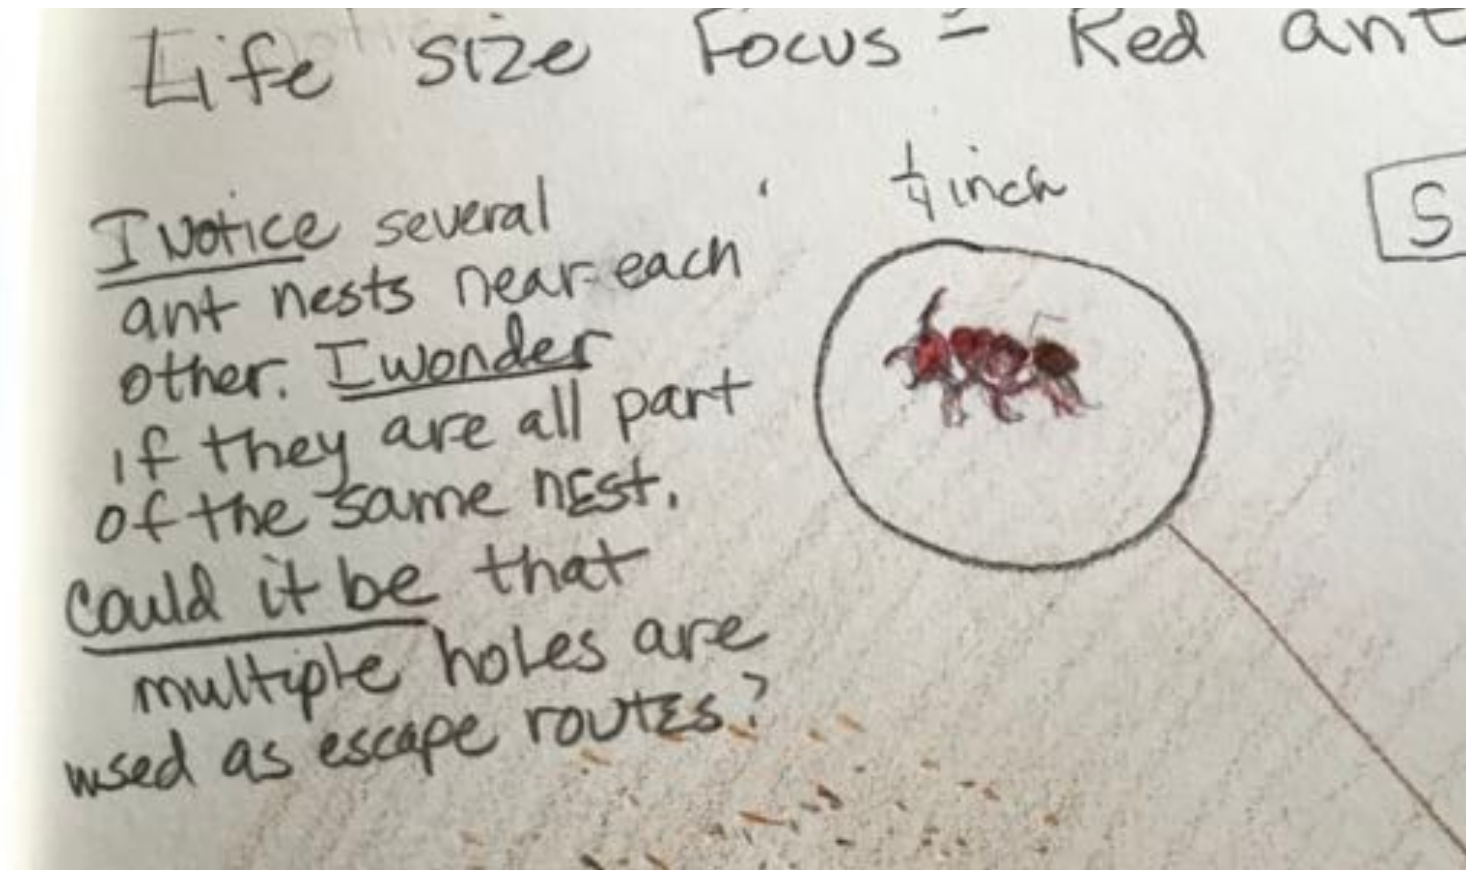 Life size Focus = Red ant
1/4 inch
S
I Notice several
ant nests near each
other. I wonder
if they are all part
of the same nest.
Could it be that
multiple holes are
used as escape routes?